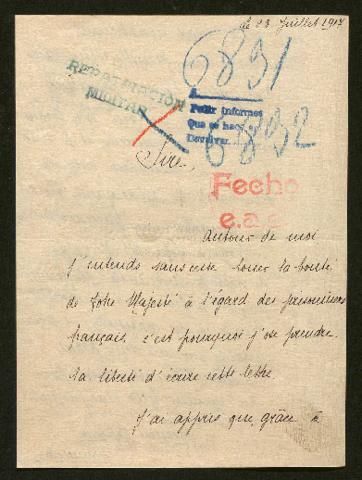 le 23 Juillet 1917
REPATRIACIÓN
MILITAR
6831
6832
Pedir informes
Que se hace
Devolver
Sire,
Fecho
e.a.
Autour de moi
j'entends sans cesse louer la bonté
de Votre Majesté à l'égard des prisonniers
français, c'est pourquoi j'ose prendre
la liberté d'écrire cette lettre.
J'ai appris que grâce à